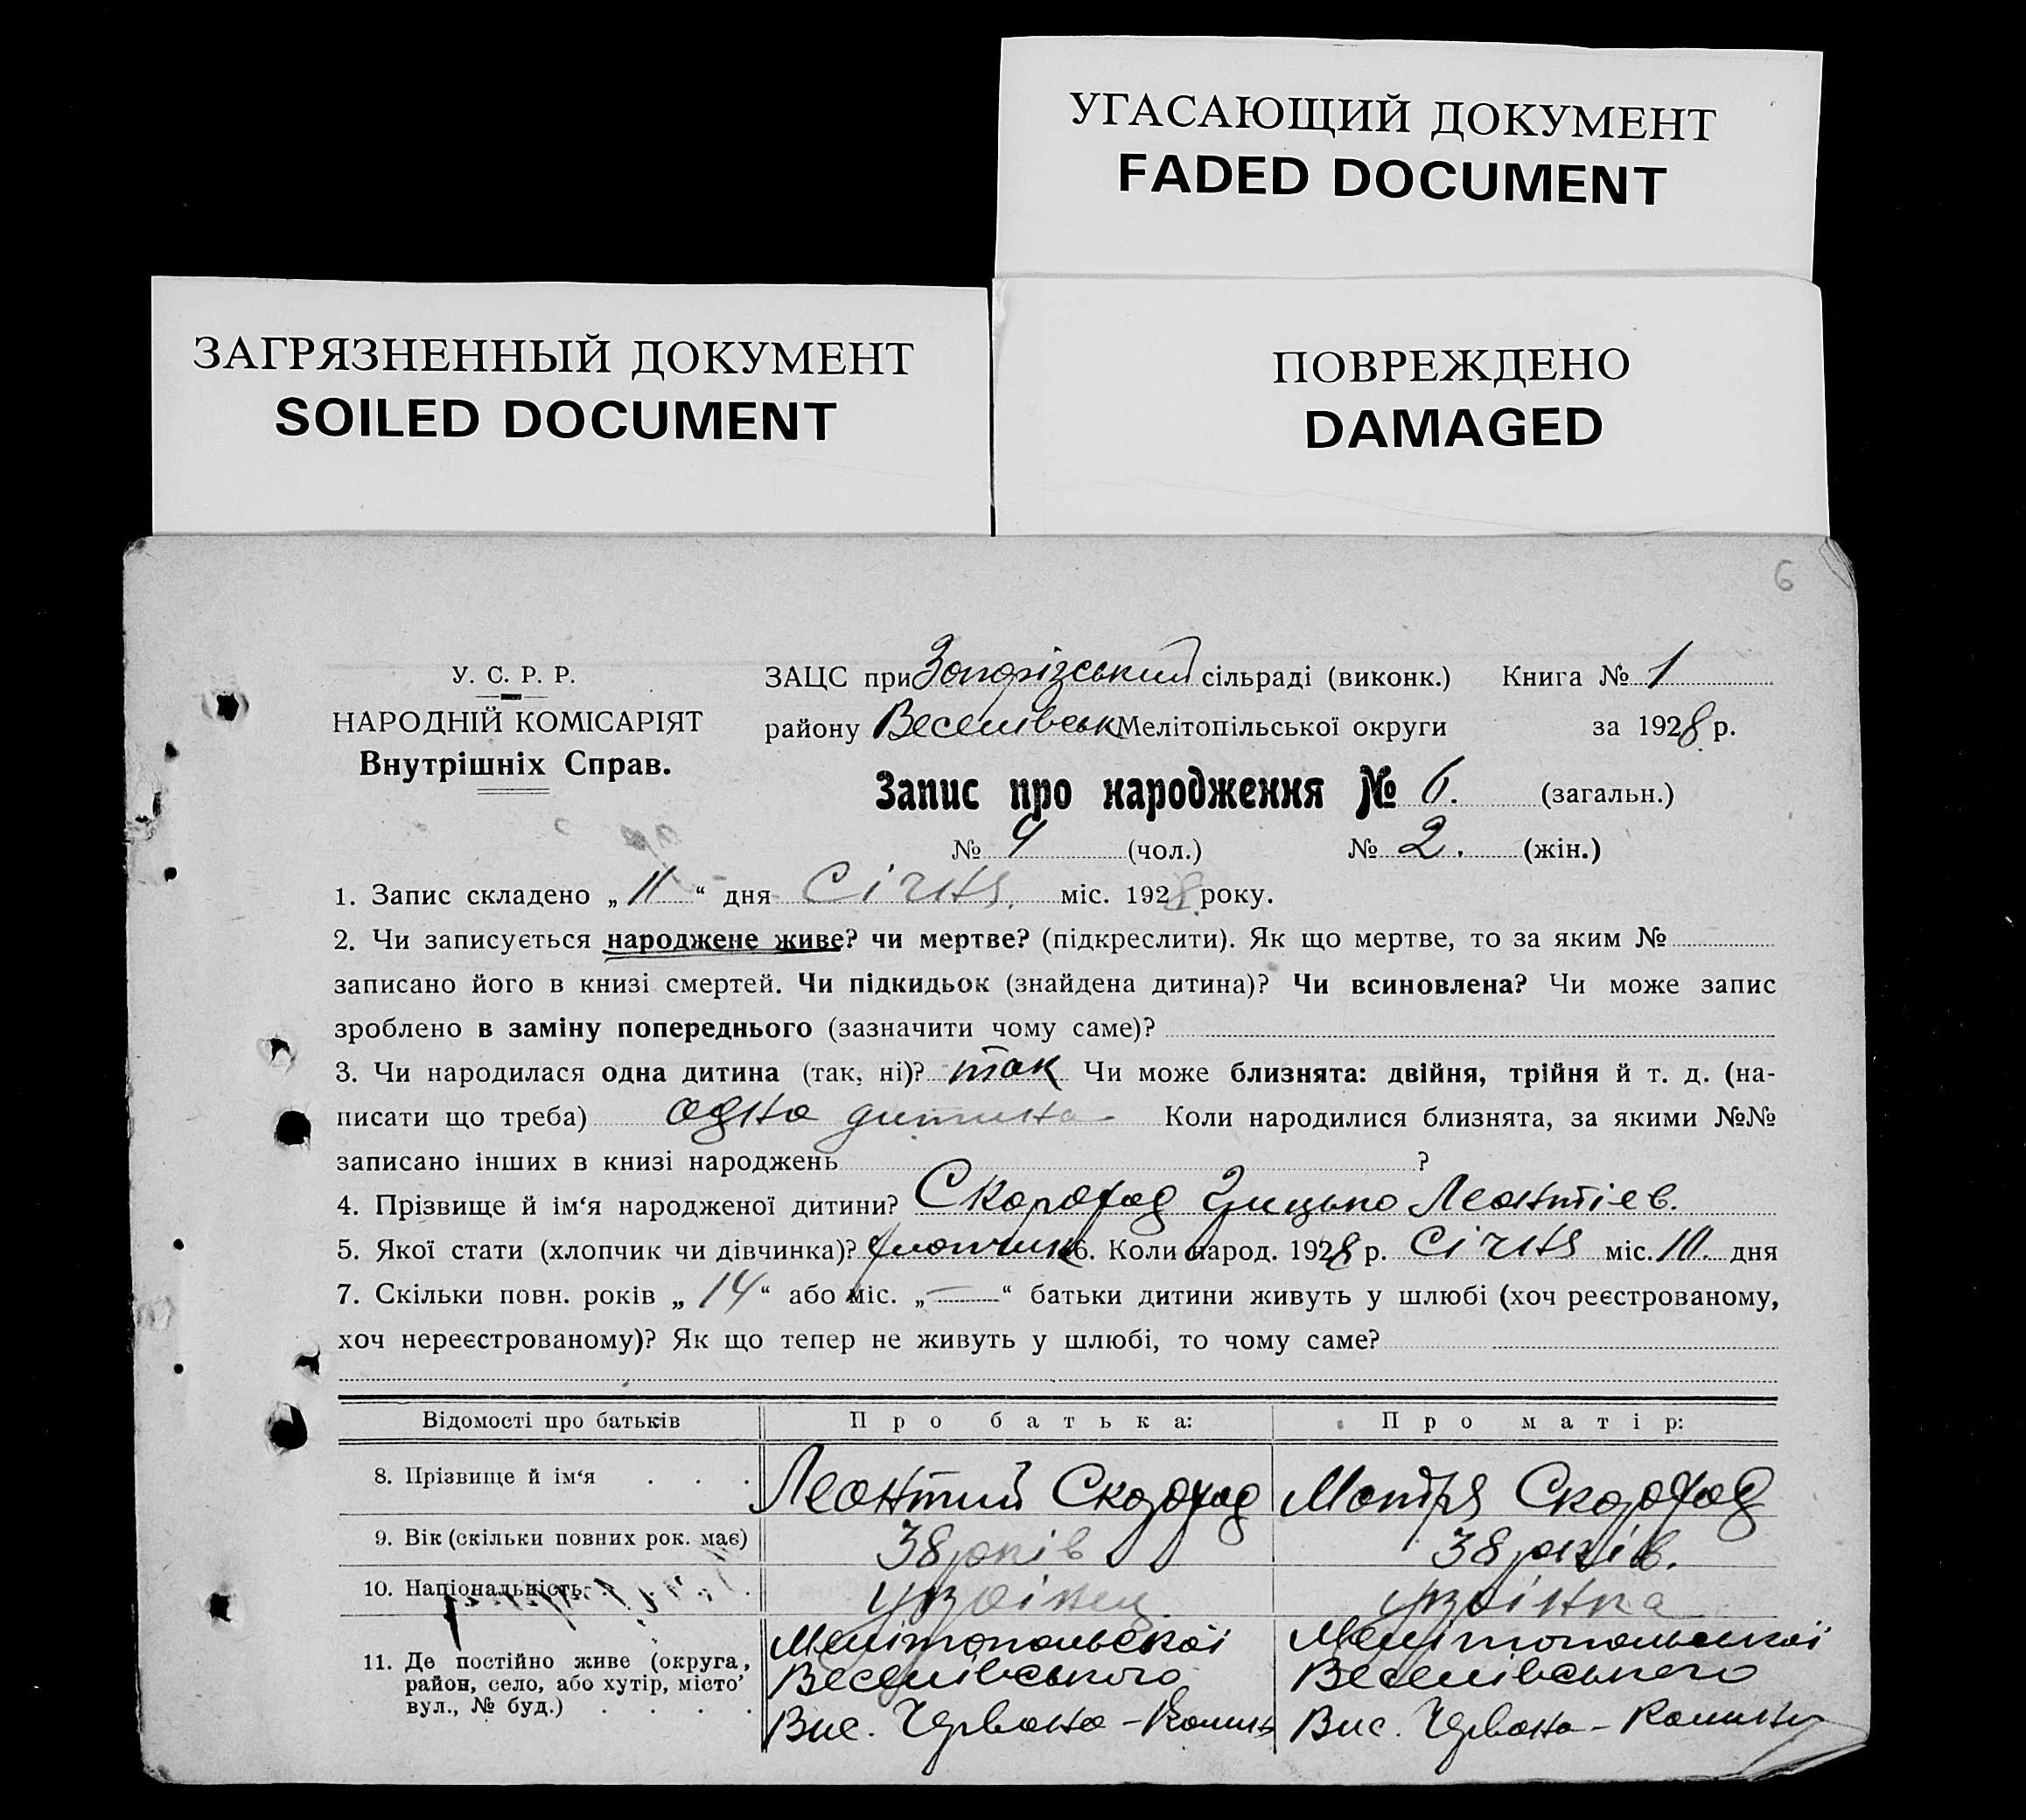 УГАСАЮЩИЙ ДОКУМЕНТ
FADED DOCUMENT
ЗАГРЯЗНЕННЫЙ ДОКУМЕНТ
SOILED DOCUMENT
ПОВРЕЖДЕНО
DAMAGED
6
У. С. Р. Р.
НАРОДНІЙ КОМІСАРІЯТ
Внутрішніх Справ.
ЗАЦС при сільраді (виконк.) Книга № 1
району Веселівськ Мелітопільської округи за 1928 р.
Запис про народження № 6. (загальн.)
№ 4 (чол.) № 2. (жін.)
1. Запис складено „ 11 “ дня Січня. міс. 1928 року.
2. Чи записується народжене живе? чи мертве? (підкреслити). Як що мертве, то за яким №
записано його в книзі смертей. Чи підкидьок (знайдена дитина)? Чи всиновлена? Чи може запис
зроблено в заміну попереднього (зазначити чому саме)?
3. Чи народилася одна дитина (так, ні)? так Чи може близнята: двійня, трійня й т. д. (на-
писати що треба) одна дитина Коли народилися близнята, за якими №№
записано інших в книзі народжень ?
4. Прізвище й ім‘я народженої дитини? Скороход Грицько Леонтіев.
5. Якої стати (хлопчик чи дівчинка)? хлопчик 6. Коли народ. 1928 р. Січня міс. 10. дня
7. Скільки повн. років „ 14 “ або міс. „ — “ батьки дитини живуть у шлюбі (хоч реєстрованому,
хоч нереєстрованому)? Як що тепер не живуть у шлюбі, то чому саме?
Відомості про батьків Про батька: Про матір:
8. Прізвище й ім‘я . . . Леонтий Скороход Мотря Скороход
9. Вік (скільки повних рок. має) 38 років 38 років.
10. Національність українец українка
11. Де постійно живе (округа, район, село, або хутір, місто’ вул., № буд.) . . . .
Мелітопольскої Мелітопольскої
Веселівського Веселівського
Вис. Червона - Вис. Червона -